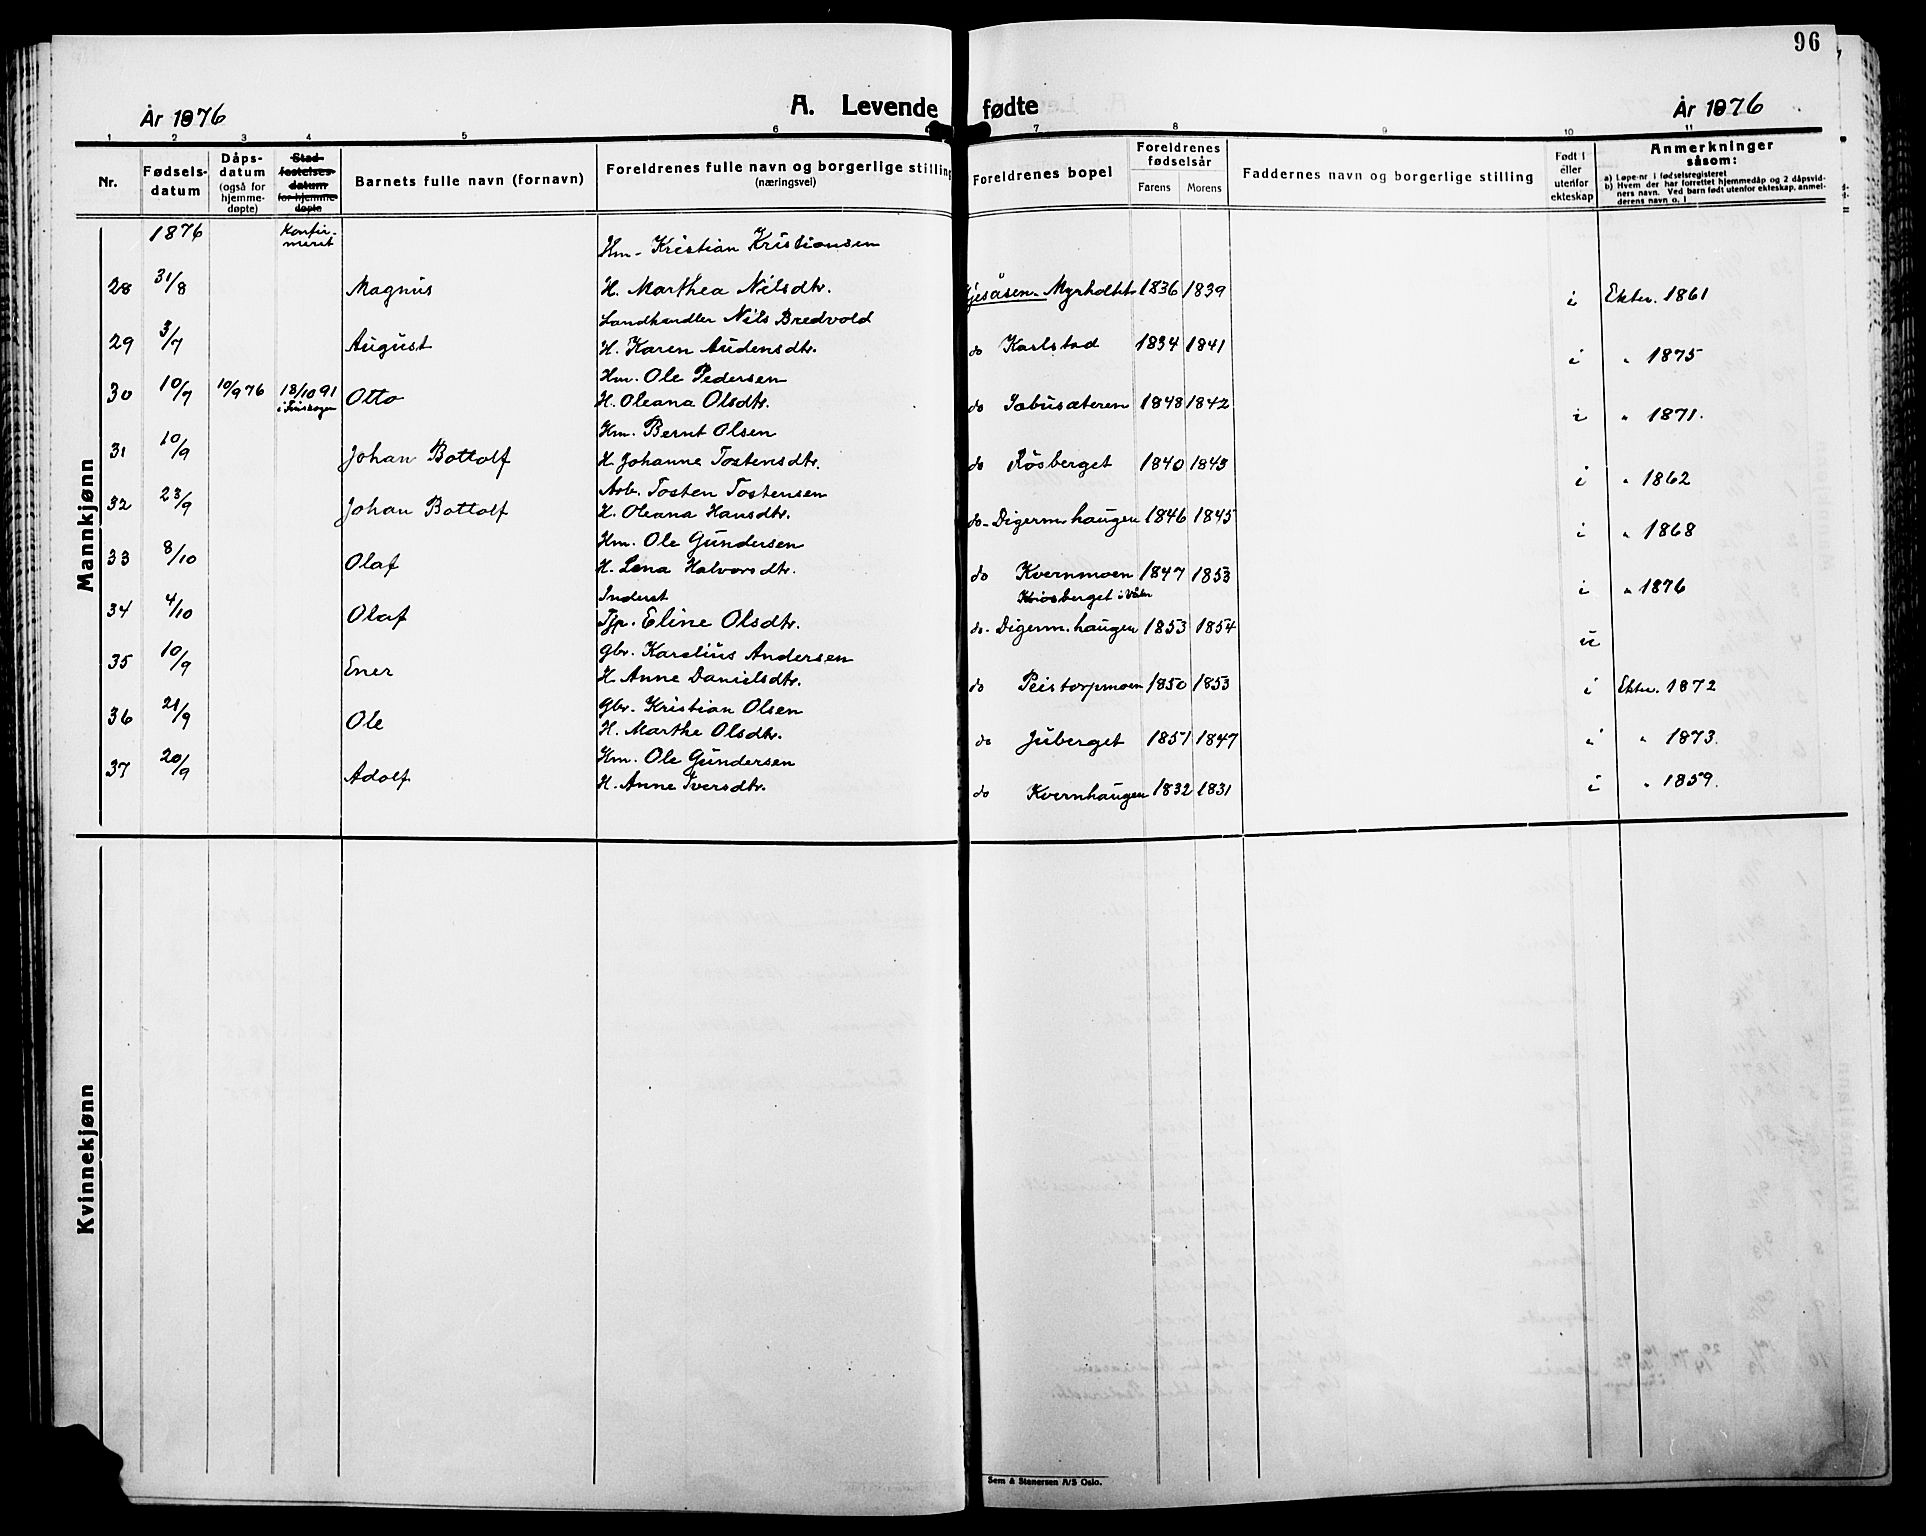 96
År 1876
A. Levende fødte
År 1876
1 2 3 4 5 6 7 8 9 10 11
Nr.
Fødsels-
datum
Dåps-
datum
(også for
hjemme-
døpte)
Stad-
festelses-
datum
for hjemme-
døpte
Barnets fulle navn (fornavn)
Foreldrenes fulle navn og borgerlige stilling
(næringsvei)
Foreldrenes bopel
Foreldrenes
fødselsår
Farens Morens
Faddernes navn og borgerlige stilling
Født i
eller
utenfor
ekteskap
Anmerkninger
såsom:
a) Løpe-nr. i fødselsregisteret
b) Hvem der har forrettet hjemmedåp og 2 dåpsvid-
ners navn. Ved barn født utenfor ekteskap, anmel-
derens navn o. l.
Mannkjønn
1876 Konfir-
meret
Hm. Kristian Kristiansen
28 31/8 Magnus H. Marthea Nilsdtr. Gjesåsen. Myrholtet 1836 1839 i Ekter. 1861
Landhandler Nils Bredvold
29 3/7 August H. Karen Audensdtr. do Karlstad 1834 1841 i " 1875
Hm. Ole Pedersen
30 10/7 10/9 76 18/10 91 Otto H. Oleana Olsdtr. do 1848 1842 i " 1871.
Hm. Bernt Olsen
31 10/9 Johan Bottolf H. Johanne Tostensdtr. do Råsberget 1840 1843 i " 1862
Arb. Tosten Tostensen
32 23/9 Johan Bottolf H. Oleana Hansdtr. do - Digerm. haugen 1846 1845 i " 1868
Hm. Ole Gundersen
33 8/10 Olaf H. Lena Halvorsdtr. do Kvernmoen 1847 1853 i " 1876
Inderst
34 4/10 Olaf Tjp. Eline Olsdtr. do - Digerm. haugen 1853 1854 u
Gbr. Karelius Andersen
35 10/9 Ener H. Anne Danielsdtr. do Peistorpmoen 1850 1853 i Ekter. 1872
Gbr. Kristian Olsen
36 21/9 Ole H. Marthe Olsdtr. do Juberget 1851 1847 i " 1873.
Hm. Ole Gundersen
37 20/9 Adolf H. Anne Iversdtr. do Kvernhaugen 1832 1831 i " 1859.
Kvinnekjønn
Sem & Stenersen A/S Oslo.